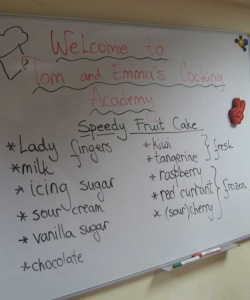 Welcome to
Tom and Emma's Cooking
Academy
Speedy Fruit Cake
* Lady fingers
* milk
* icing sugar
* sour cream
* vanilla sugar
* chocolate
* kiwi
* tangerine
fresh
* raspberry
* red currant
* (sour) cherry
frozen